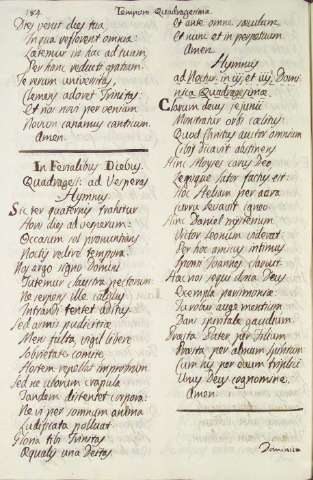 184.
Tempore Quadragesimæ
Dies venit dies tua
In qua reflorent omnia:
Lætemur in hac ad tuam,
Per hanc reducti gratiam.
Te rerum universitas,
Clemens adoret Trinitas:
Et nos novi per veniam
Novum canamus canticum.
Amen.
In Ferialibus Diebus.
Quadrages: ad Vesperas
Hymnus
Sic ter quaternis trahitur
Horis dies ad vesperum:
Occasum sol pronuntians
Noctis redire tempora:
Nos ergo signo Domini
Tutemur claustra pectorum
Ne serpens ille callidus
Intrandi tentet aditus
Sed armis pudicitiæ
Mens fulta vigil libere
Sobrietate comite
Hostem repellat improbum
Sed nec ciborum crapula
Tandem distentet corpora:
Ne vi per somnum anima
Ludificata polluat
Gloria tibi Trinitas
Æqualis una Deitas
Et ante omne sæculum
Et nunc et in perpetuum
Amen.
Hymnus
ad Noctur. in iij et iiij Domi-
nica Quadragesimæ.
Clarum decus jejunii
Monstratur orbi cælitus:
Quod Christus auctor omnium
Cibis dicavit abstinens
Hinc Moyses carus Deo
Legisque lator factus est:
Hoc Heliam per aera
curru levavit igneo
Hinc Daniel mysterium
Victor leonum viderat:
Per hoc amicus intimus
Sponsi Joannes claruit.
Hæc nos sequi dona Deus
Exempla parsimoniæ
Tu robur auge mentium
Dans spiritale gaudium.
Præsta Pater per Filium
Præsta per almum Spiritum
Cum his per ævum triplici
Unus Deus cognomine.
Amen.
Dominica